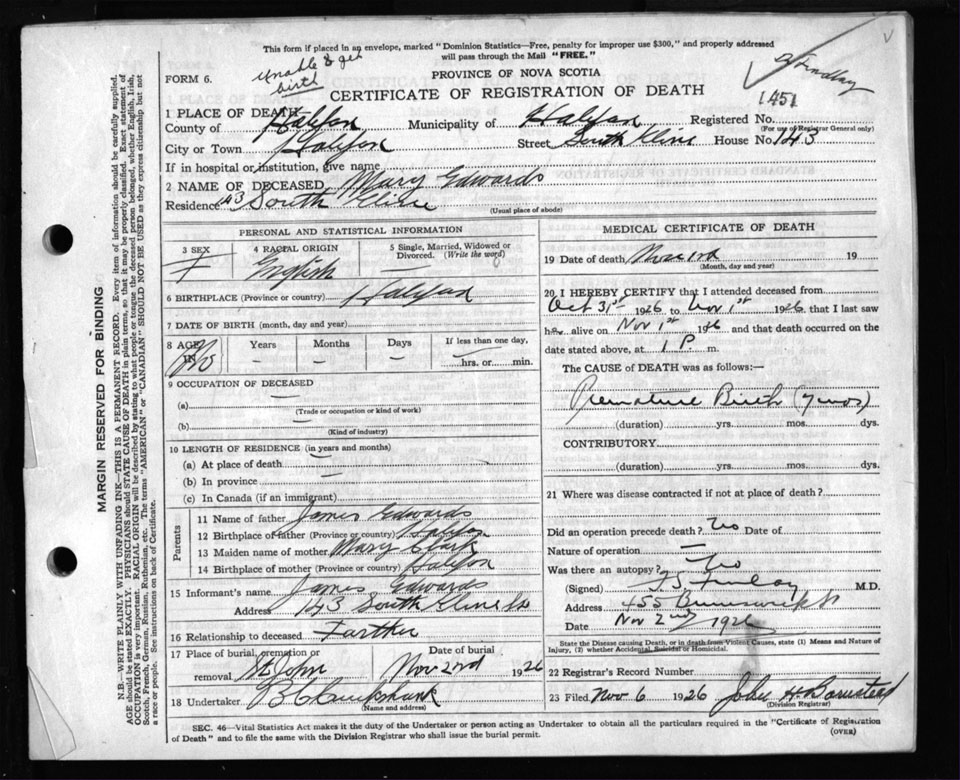 This form if placed in an envelope, marked "Dominion Statistics—Free, penalty for improper use $300," and properly addressed
will pass through the Mail "FREE."
FORM 6.
Unable to get
birth
PROVINCE OF NOVA SCOTIA
CERTIFICATE OF REGISTRATION OF DEATH
1451
1 PLACE OF DEATH
County of Halifax Municipality of Halifax Registered No.
(For use of Registrar General only)
City or Town Halifax Street South Kline House No. 143
If in hospital or institution, give name
2 NAME OF DECEASED Mary Edwards
Residence 143 South Kline
(Usual place of abode)
PERSONAL AND STATISTICAL INFORMATION
3 SEX 4 RACIAL ORIGIN 5 Single, Married, Widowed or
Divorced. (Write the word)
F English —
6 BIRTHPLACE (Province or country) Halifax
7 DATE OF BIRTH (month, day and year)
8 AGE Years Months Days If less than one day,
IN — — — hrs. or min.
9 OCCUPATION OF DECEASED
(a) —
(Trade or occupation or kind of work)
(b) —
(Kind of industry)
10 LENGTH OF RESIDENCE (in years and months)
(a) At place of death —
(b) In province —
(c) In Canada (if an immigrant)
Parents
11 Name of father James Edwards
12 Birthplace of father (Province or country) Halifax
13 Maiden name of mother Mary Clark
14 Birthplace of mother (Province or country) Halifax
15 Informant's name James Edwards
Address 143 South Kline St
16 Relationship to deceased Farther
17 Place of burial, cremation or Date of burial
removal St John Nov 2nd 1926
18 Undertaker
(Name and address)
MEDICAL CERTIFICATE OF DEATH
19 Date of death 19
(Month, day and year)
20 I HEREBY CERTIFY that I attended deceased from
Oct 31st 1926 to Nov 1st 1926 that I last saw
her alive on Nov 1st 1926 and that death occurred on the
date stated above, at 1 P m.
The CAUSE of DEATH was as follows:—
Premature Birth (7 mos)
(duration) yrs. mos. dys.
CONTRIBUTORY
(duration) yrs. mos. dys.
21 Where was disease contracted if not at place of death?
Did an operation precede death? No Date of
Nature of operation —
Was there an autopsy? No
(Signed) Finlay M.D.
Address 455 Brunswick St
Date Nov 2nd 1926
State the Disease causing Death, or in death from Violent Causes, state (1) Means and Nature of
Injury, (2) whether Accidental, Suicidal or Homicidal.
22 Registrar's Record Number
23 Filed Nov 6 1926 John H Barnstead
(Division Registrar)
SEC. 46—Vital Statistics Act makes it the duty of the Undertaker or person acting as Undertaker to obtain all the particulars required in the "Certificate of Registration
of Death" and to file the same with the Division Registrar who shall issue the burial permit.
(OVER)
MARGIN RESERVED FOR BINDING
N.B.—WRITE PLAINLY WITH UNFADING INK—THIS IS A PERMANENT RECORD. Every item of information should be carefully supplied.
AGE should be stated EXACTLY. PHYSICIANS should STATE CAUSE OF DEATH in plain terms, so that it may be properly classified. Exact statement of
OCCUPATION is very important. RACIAL ORIGIN will be described by stating to what people or tongue the deceased person belonged, whether English, Irish,
Scotch, French, German, Russian, Ruthenian, etc. The terms "AMERICAN" or "CANADIAN" SHOULD NOT BE USED as they express citizenship but not
a race or people. See instructions on back of Certificate.